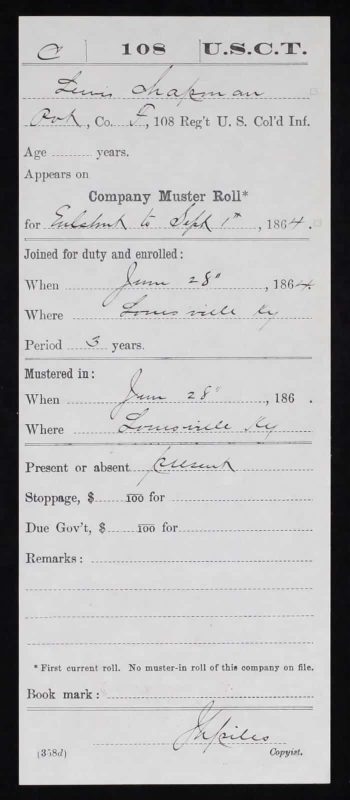 C | 108 | U.S.C.T.
Lewis Chapman
Pvt, Co. F, 108 Reg't U. S. Col'd Inf.
Age ......... years.
Appears on
Company Muster Roll*
for Enlstmt to Sept 1st, 1864.
Joined for duty and enrolled:
When June 28", 1864.
Where Louisville Ky
Period 3 years.
Mustered in:
When June 28", 186 .
Where Louisville Ky
Present or absent present
Stoppage, $ 100 for
Due Gov't, $ 100 for
Remarks:
* First current roll. No muster-in roll of this company on file.
Book mark:
(358d) Copyist.